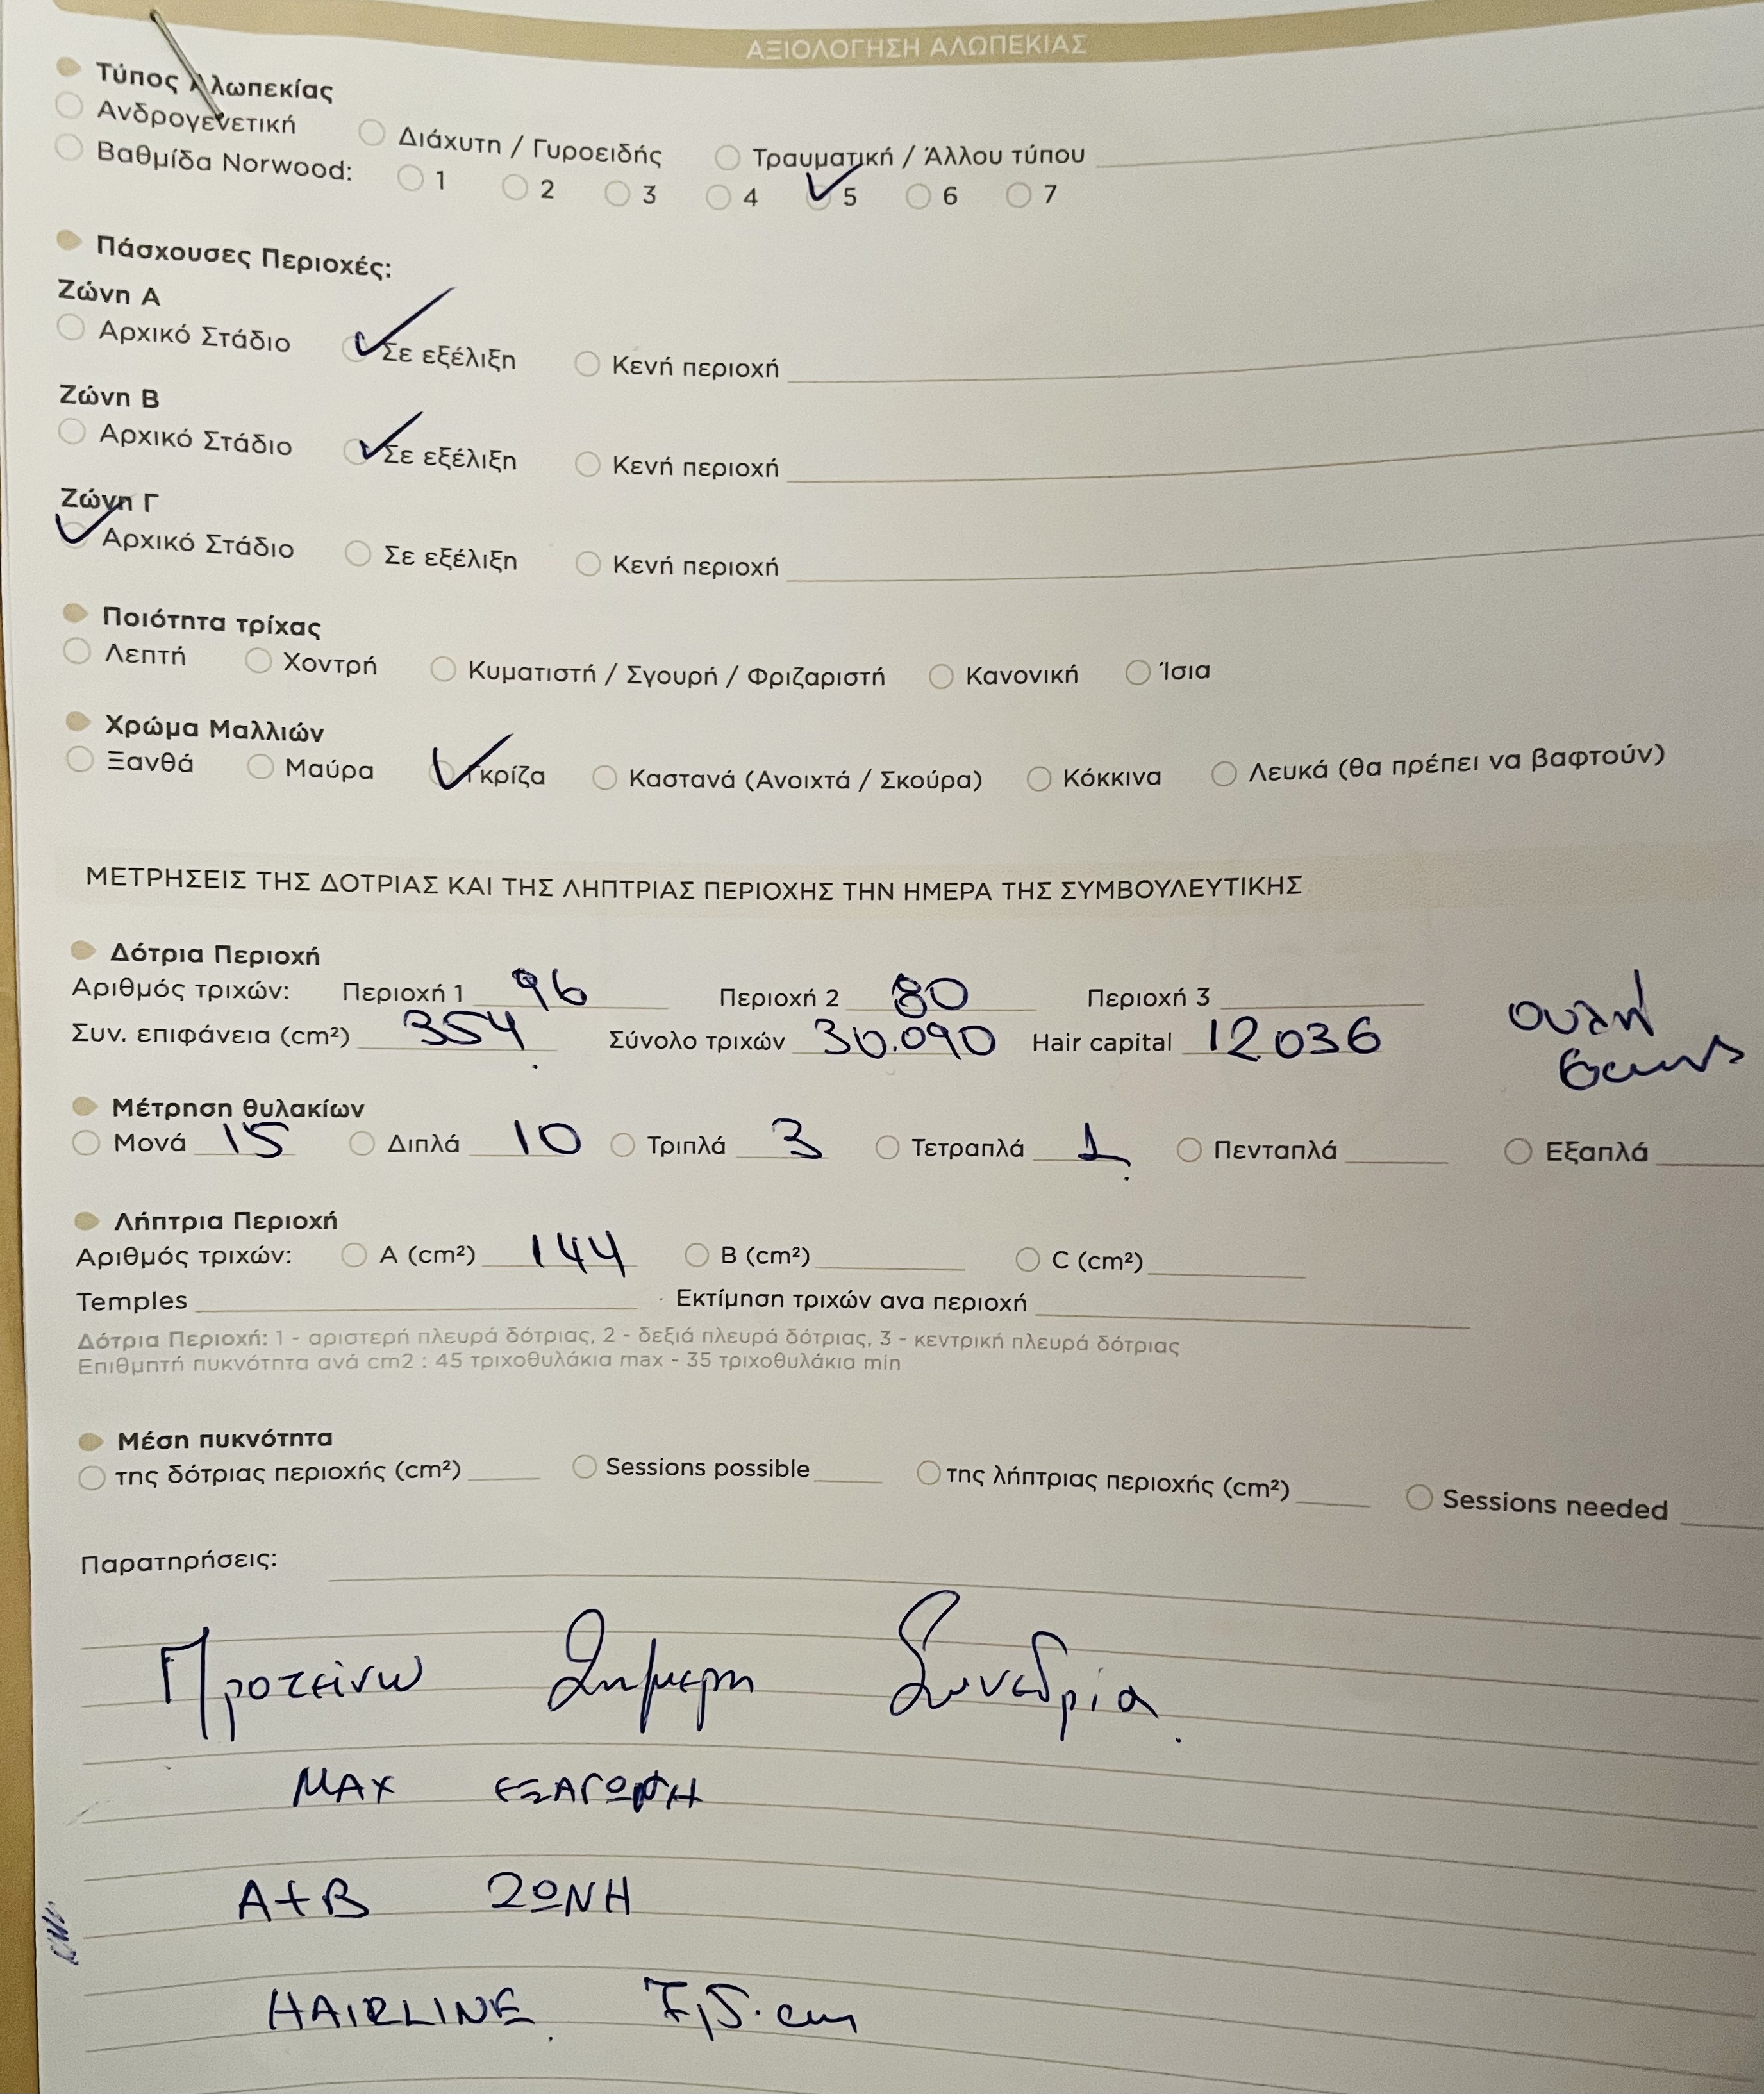 ΑΞΙΟΛΟΓΗΣΗ ΑΛΩΠΕΚΙΑΣ
Τύπος Αλωπεκίας
Ανδρογενετική Διάχυτη / Γυροειδής Τραυματική / Άλλου τύπου
Βαθμίδα Norwood: 1 2 3 4 5 6 7
Πάσχουσες Περιοχές:
Ζώνη Α
Αρχικό Στάδιο Σε εξέλιξη Κενή περιοχή
Ζώνη Β
Αρχικό Στάδιο Σε εξέλιξη Κενή περιοχή
Ζώνη Γ
Αρχικό Στάδιο Σε εξέλιξη Κενή περιοχή
Ποιότητα τρίχας
Λεπτή Χοντρή Κυματιστή / Σγουρή / Φριζαριστή Κανονική Ίσια
Χρώμα Μαλλιών
Ξανθά Μαύρα Γκρίζα Καστανά (Ανοιχτά / Σκούρα) Κόκκινα Λευκά (θα πρέπει να βαφτούν)
ΜΕΤΡΗΣΕΙΣ ΤΗΣ ΔΟΤΡΙΑΣ ΚΑΙ ΤΗΣ ΛΗΠΤΡΙΑΣ ΠΕΡΙΟΧΗΣ ΤΗΝ ΗΜΕΡΑ ΤΗΣ ΣΥΜΒΟΥΛΕΥΤΙΚΗΣ
Δότρια Περιοχή
Αριθμός τριχών: Περιοχή 1 96 Περιοχή 2 80 Περιοχή 3 ουλή
Συν. επιφάνεια (cm²) 354 Σύνολο τριχών 30.090 Hair capital 12036
Μέτρηση θυλακίων
Μονά 15 Διπλά 10 Τριπλά 3 Τετραπλά 1 Πενταπλά Εξαπλά
Λήπτρια Περιοχή
Αριθμός τριχών: A (cm²) 144 B (cm²) C (cm²)
Temples Εκτίμηση τριχών ανα περιοχή
Δότρια Περιοχή: 1 - αριστερή πλευρά δότριας, 2 - δεξιά πλευρά δότριας, 3 - κεντρική πλευρά δότριας
Επιθμητή πυκνότητα ανά cm2 : 45 τριχοθυλάκια max - 35 τριχοθυλάκια min
Μέση πυκνότητα
της δότριας περιοχής (cm²) Sessions possible της λήπτριας περιοχής (cm²) Sessions needed
Παρατηρήσεις:
Προτείνω 2ημερη Συνεδρία.
MAX ΕΞΑΓΩΓΗ
A+B ΖΩΝΗ
HAIRLINE 7,5 cm